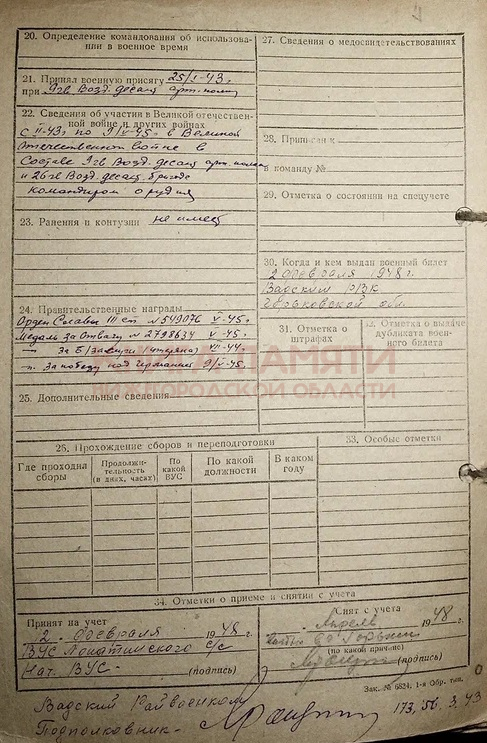 20. Определение командования об использова-
нии в военное время
21. Принял военную присягу 25/V-43г.
при 9гв Возд. десант арт. полку
22. Сведения об участии в Великой отечествен-
ной войне и других войнах
с II-43г по 9/V-45г. в Великой
отечественной войне в
Составе 9гв Возд. десант арт. полка
и 26гв Возд. десант. бригаде
командиром орудия
23. Ранения и контузии не имеет
24. Правительственные награды
Орден Славы III ст №549076 V-45г.
Медаль За Отвагу №2798634 V-45г.
За Б/Заслуги VII-44г.
За победу над Германией 9/V-45г.
25. Дополнительные сведения
26. Прохождение сборов и переподготовки
Где проходил
сборы
Продолжи-
тельность
(в днях, часах)
По
какой
ВУС
По какой
должности
В каком
году
27. Сведения о медосвидетельствованиях
28. Приписан к
в команду №
29. Отметка о состоянии на спецучете
30. Когда и кем выдан военный билет
2 февраля 1948г.
Вадским РВК
Горьковской обл.
31. Отметка о
штрафах
32. Отметка о выдаче
дубликата воен-
ного билета
33. Особые отметки
ПАМЯТИ
НИЖЕГОРОДСКОЙ ОБЛАСТИ
34. Отметки о приеме и снятии с учета
Принят на учет
2. февраля 1948 г.
ВУС Лопатинского с/с
Нач. ВУС - (подпись)
Снят с учета
Апрель 1948 г.
Горький
(по какой причине)
(подпись)
Зак. № 6824. 1-я Обр. тип.
Вадский Райвоенком
Подполковник -
173, 56. 3. 43